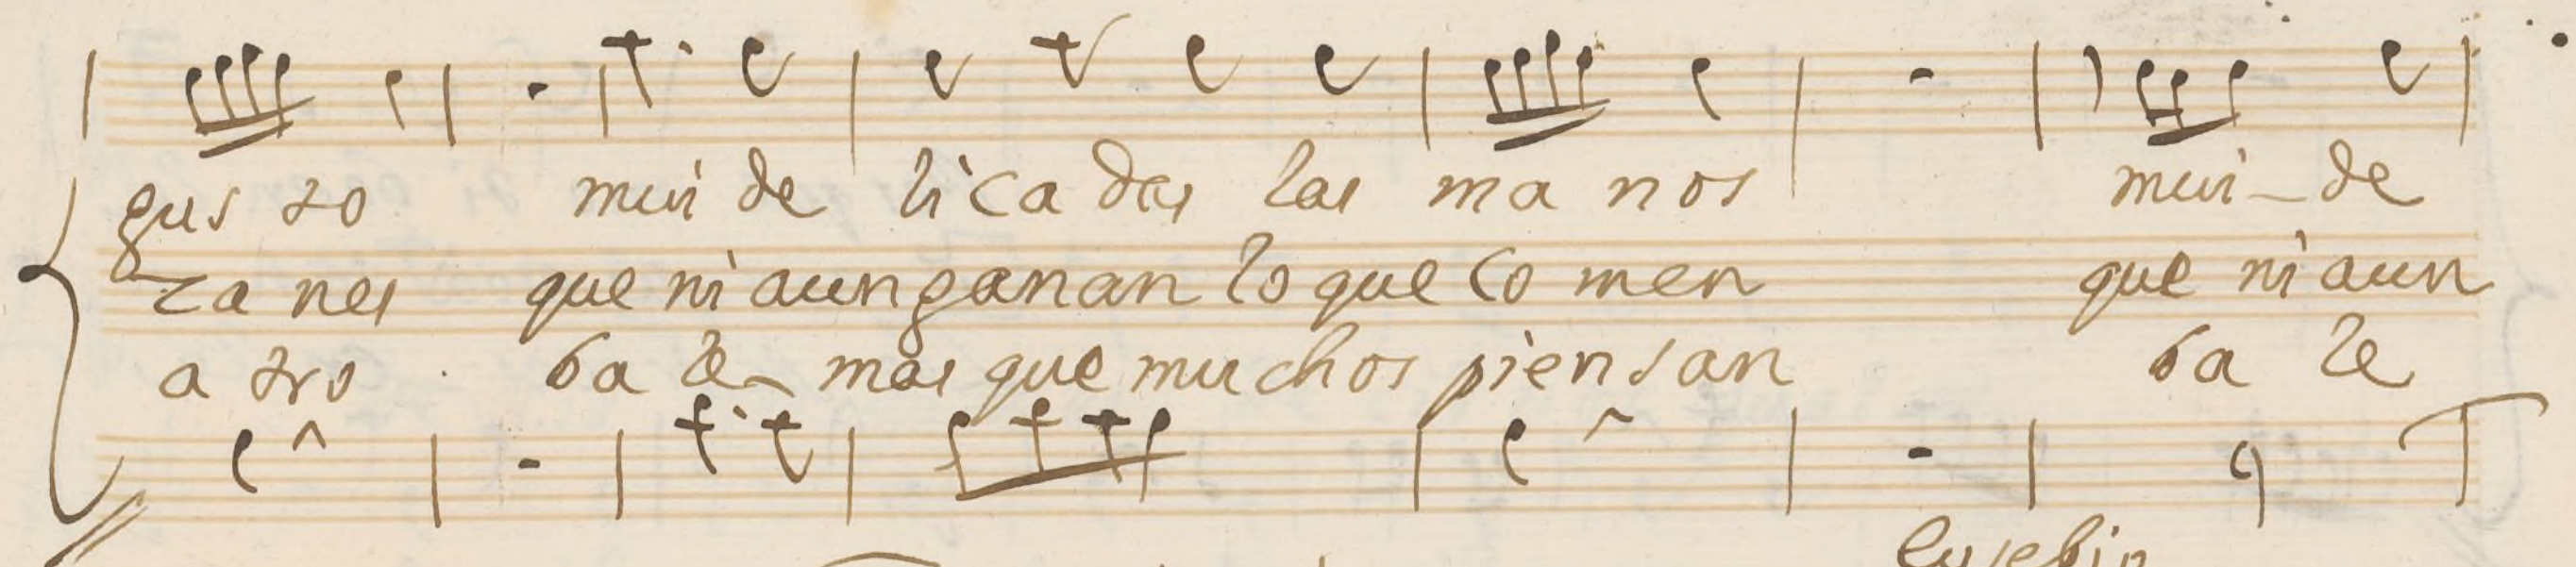 gus to mui de li ca das las ma nos mui - de
ca nes que ni aun ganan lo que co men que ni aun
a tro ba le mas que mu chos piensan ba le
Eusebio